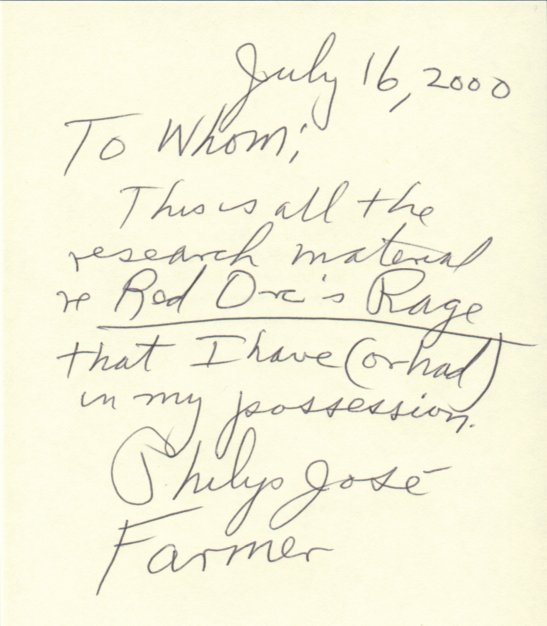 July 16, 2000
To Whom;
This is all the
research material
re Red Orc's Rage
that I have (or had)
in my possession.
Philip José
Farmer